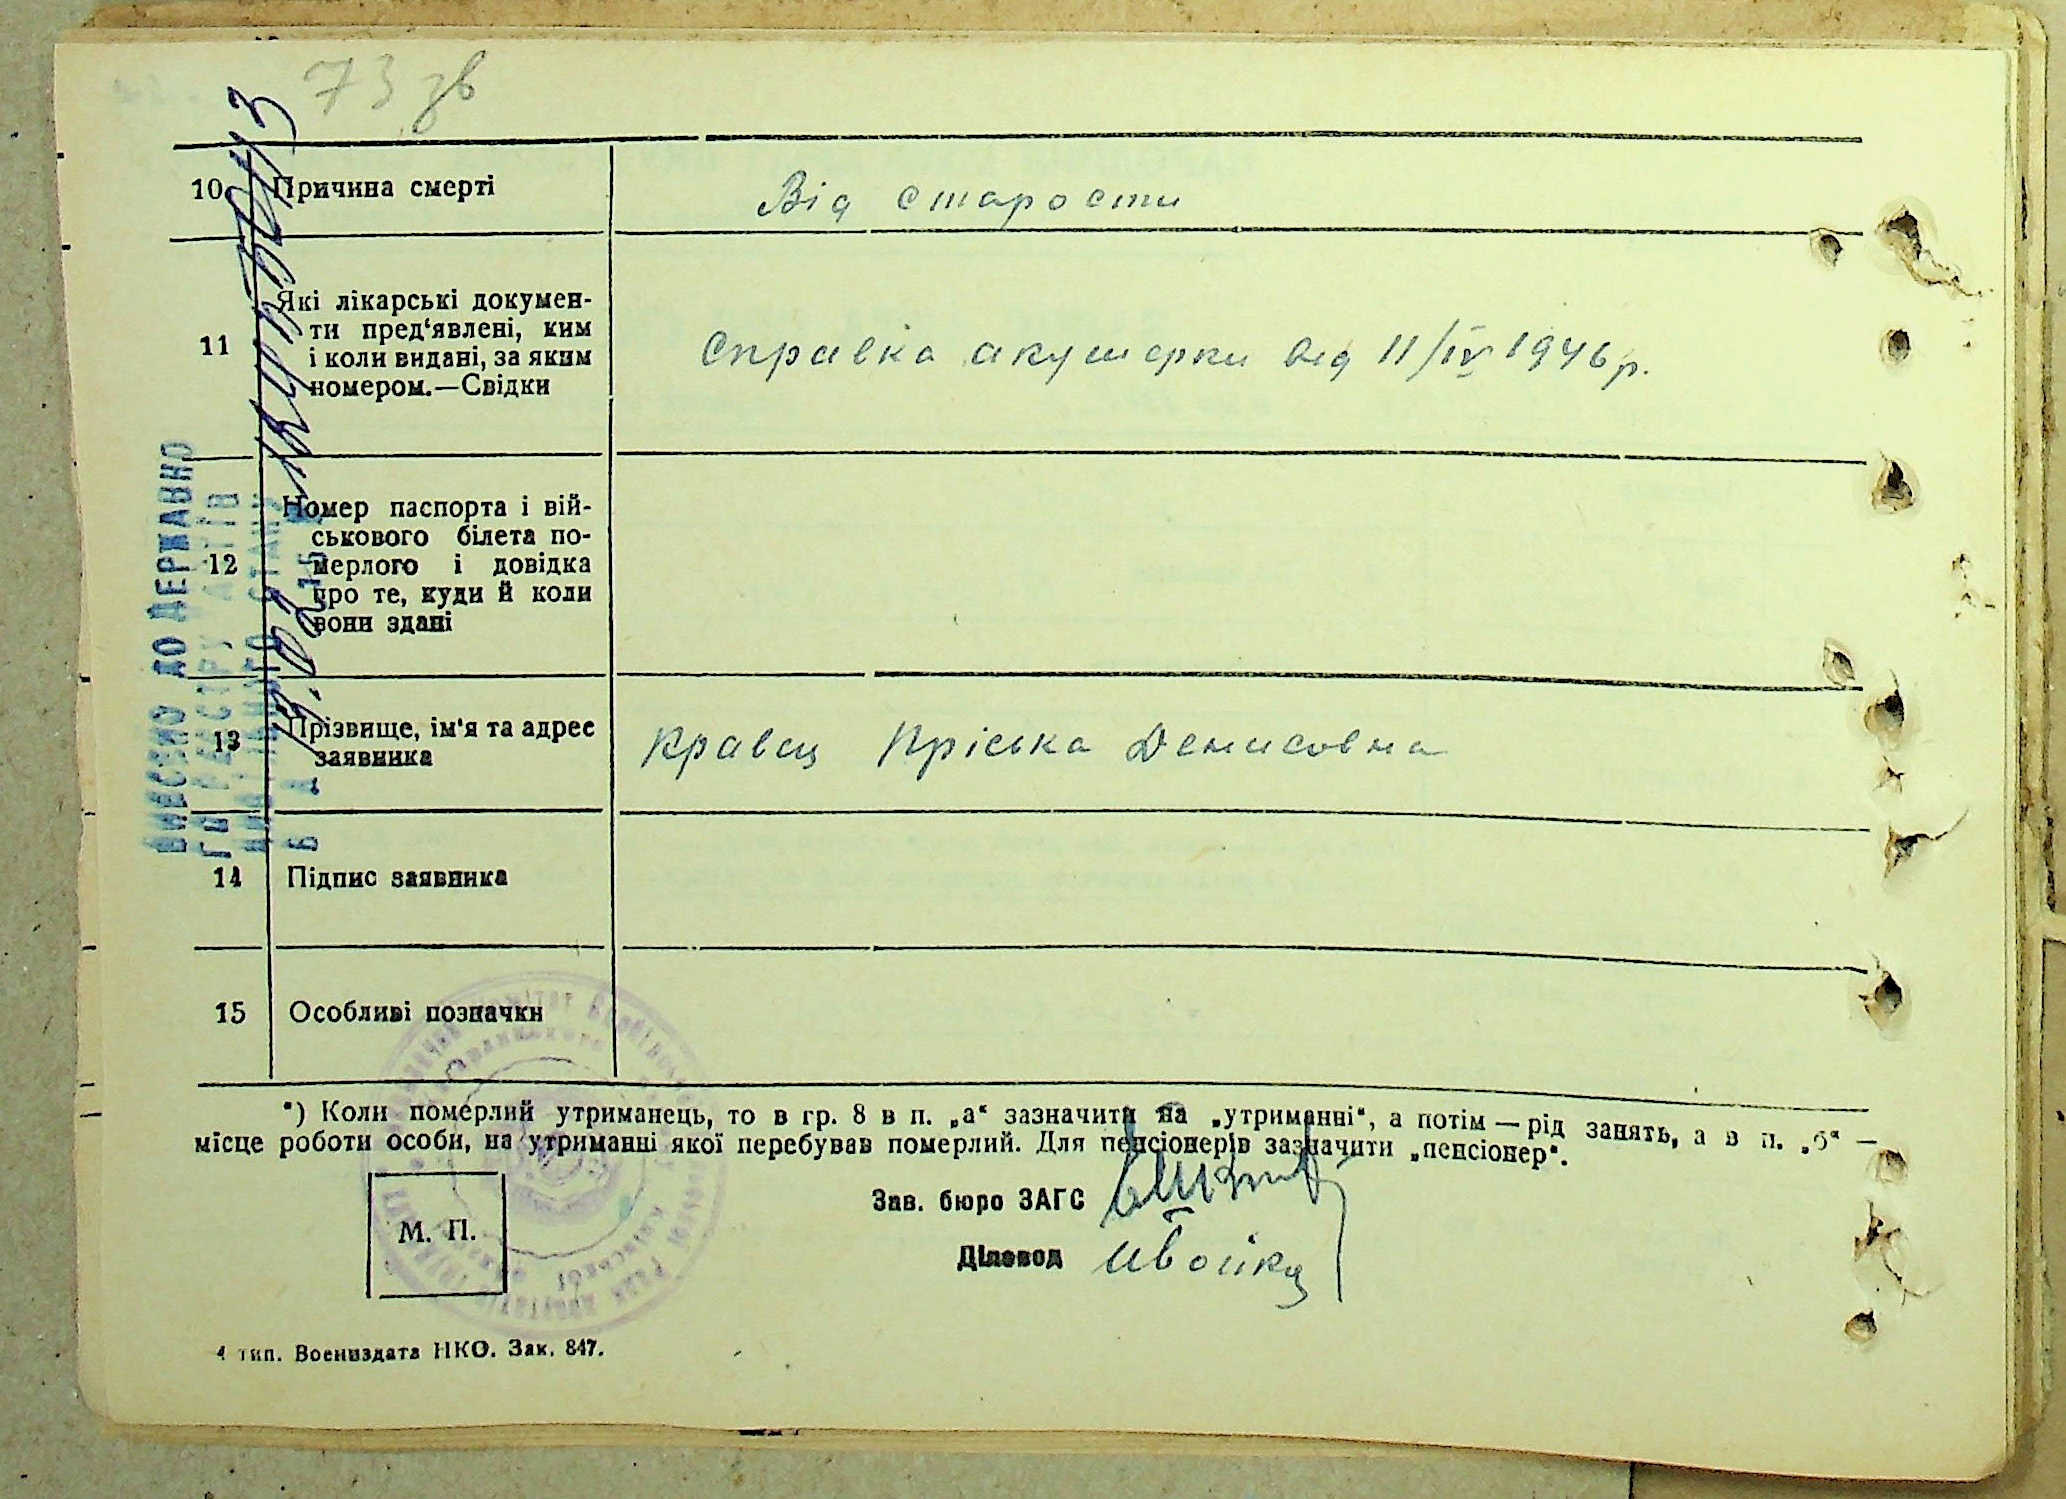 73 зв
10 Причина смерті
Від старости
11 Які лікарські докумен-
ти пред‘явлені, ким
і коли видані, за яким
номером.—Свідки
Справка акушерки від 11/IV 1946 р.
12 Номер паспорта і вій-
ськового білета по-
мерлого і довідка
про те, куди й коли
вони здані
13 Прізвище, ім‘я та адрес
заявника
Кравец Пріська Денисовна
14 Підпис заявника
15 Особливі позначки
ВНЕСЕНО ДО ДЕРЖАВНО
ГО РЕЄСТРУ АКТІВ
ЦИВІЛЬНОГО СТАНУ
*) Коли померлий утриманець, то в гр. 8 в п. „а“ зазначити на „утриманні“, а потім — рід занять, а в п. „б“ —
місце роботи особи, на утриманні якої перебував померлий. Для пенсіонерів зазначити „пенсіонер“.
М. П.
Зав. бюро ЗАГС
Діловод
4 тип. Воениздата НКО. Зак. 847.